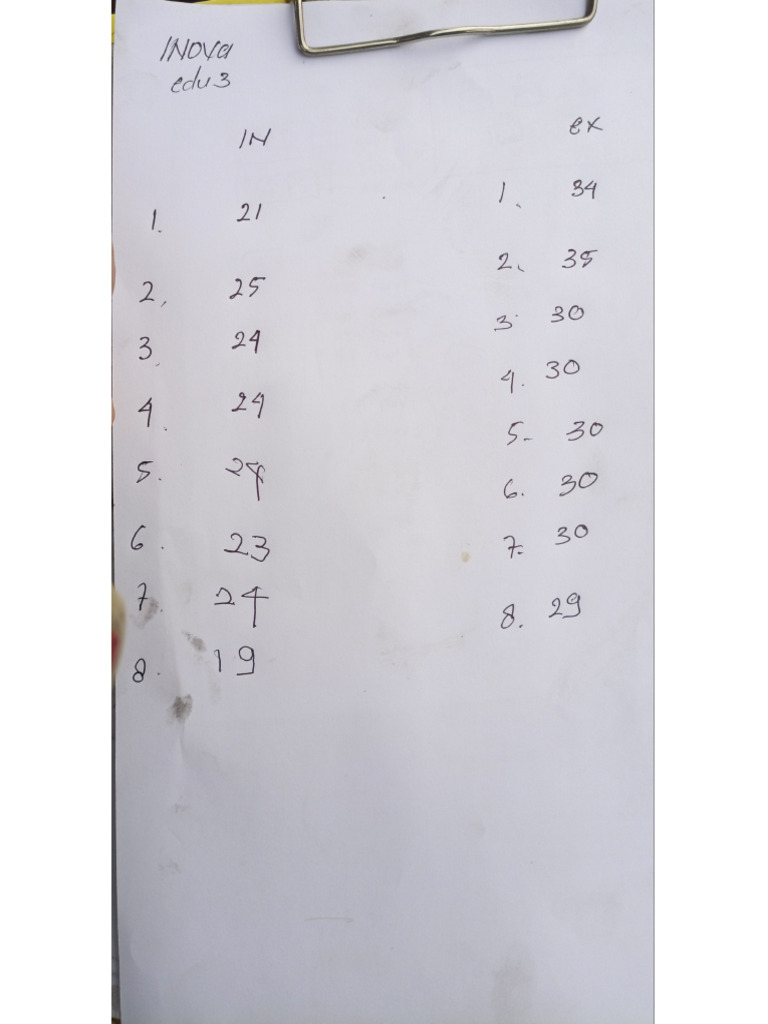 INOVA
edu3
IN
ex
1. 21
1. 34
2. 25
2. 35
3. 24
3. 30
4. 24
4. 30
5. 24
5- 30
6. 23
6. 30
7. 24
7. 30
8. 19
8. 29